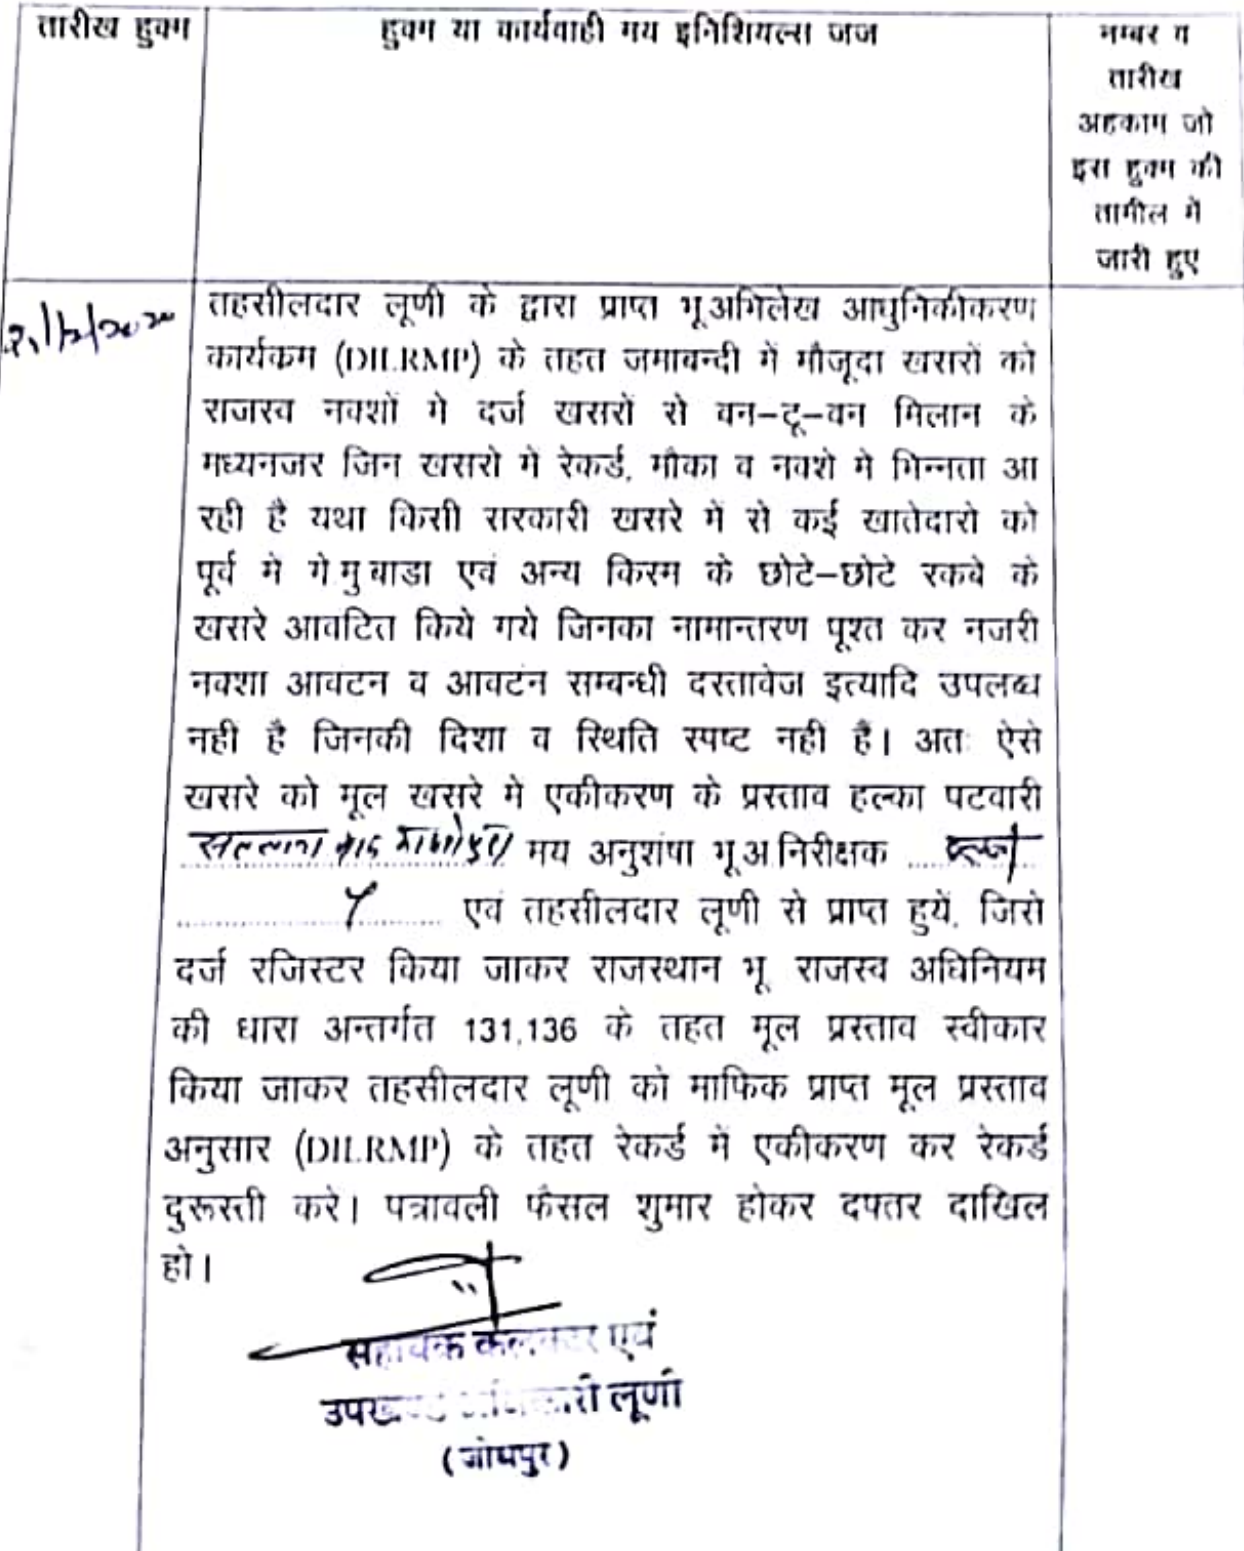 तारीख हुक्म
हुक्म या कार्यवाही मय इनिशियल्स जज
नम्बर व
तारीख
अहकाम जो
इस हुक्म की
तामील में
जारी हुए
तहसीलदार लूणी के द्वारा प्राप्त भू.अभिलेख आधुनिकीकरण
कार्यकम (DILRMP) के तहत जमाबन्दी में मौजूदा खसरों को
राजस्व नक्शों मे दर्ज खसरों से वन–टू–वन मिलान के
मध्यनजर जिन खसरो में रेकर्ड, मौका व नक्शे मे भिन्नता आ
रही है यथा किसी सरकारी खसरे में से कई खातेदारो को
पूर्व मे गे.मु.बाडा एवं अन्य किस्म के छोटे–छोटे रकबे के
खसरे आवटित किये गये जिनका नामान्तरण पृश्त कर नजरी
नक्शा आवटन व आवटंन सम्बन्धी दस्तावेज इत्यादि उपलब्ध
नही है जिनकी दिशा व स्थिति स्पष्ट नही है। अतः ऐसे
खसरे को मूल खसरे मे एकीकरण के प्रस्ताव हल्का पटवारी
मय अनुशंषा भू.अ.निरीक्षक
एवं तहसीलदार लूणी से प्राप्त हुयें, जिसे
दर्ज रजिस्टर किया जाकर राजस्थान भू. राजस्व अधिनियम
की धारा अन्तर्गत 131,136 के तहत मूल प्रस्ताव स्वीकार
किया जाकर तहसीलदार लूणी को माफिक प्राप्त मूल प्रस्ताव
अनुसार (DILRMP) के तहत रेकर्ड में एकीकरण कर रेकर्ड
दुरूस्ती करे। पत्रावली फैसल शुमार होकर दफ्तर दाखिल
हो।
सहायक कलक्टर एवं
उपखण्ड अधिकारी लूणी
(जोधपुर)